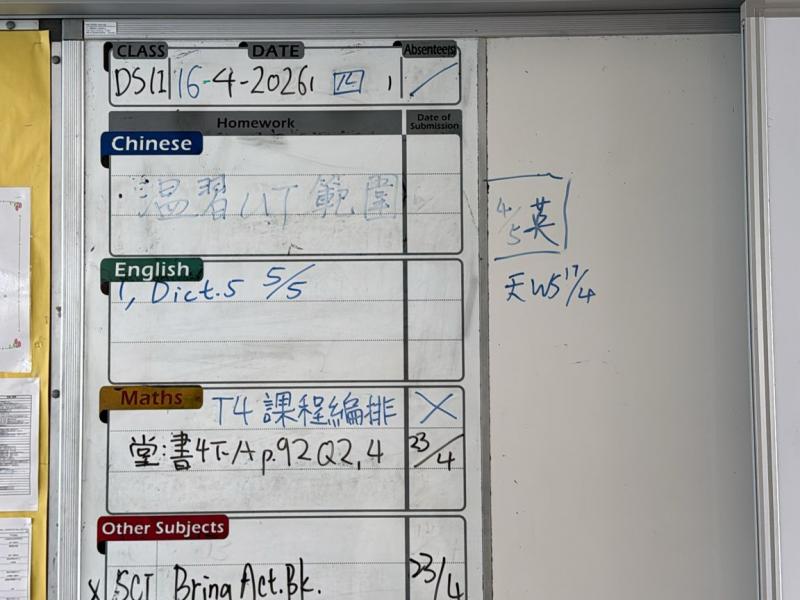 CLASS DATE Absentee(s)
16-4-2026 (四)
Homework Date of Submission
Chinese
温習UT範圍
4/5 英
English
1, Dict.5 5/5
天 WS 17/4
Maths
T4 課程編排 X
堂:書4下A p.92 Q2,4 23/4
Other Subjects
X SCI Bring Act.Bk. 23/4